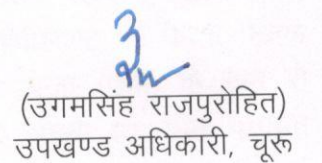 (उगमसिंह राजपुरोहित)
उपखण्ड अधिकारी, चूरू